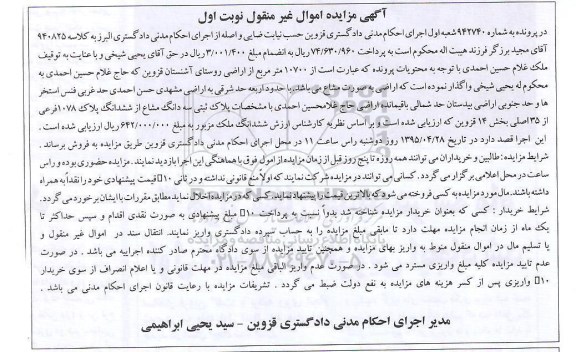 آگهی مزایده اموال غیر منقول نوبت اول
در پرونده به شماره ۹۴۲۷۴۰ شعبه اول اجرای احکام مدنی دادگستری قزوین حسب نیابت قضایی واصله از اجرای احکام مدنی دادگستری البرز به کلاسه ۹۴۰۸۲۵
آقای مجید برزگر فرزند هیبت اله محکوم است به پرداخت ۷۴/۶۳۰/۹۶۰ ریال به انضمام مبلغ ۳/۰۰۱/۴۰۰ ریال در حق آقای یحیی شیخی و با عنایت به توقیف
ملک غلام حسین احمدی با توجه به محتویات پرونده که عبارت است از ۱۰۷۰۰ متر مربع از اراضی روستای آشنستان قزوین که حاج غلام حسین احمدی به
محکوم له یحیی شیخی واگذار نموده است که اراضی به صورت مشاع می باشد. با حدود اربعه حد شرقی به اراضی مشهدی حسن احمدی حد غربی فنس استخر
ها و حد جنوبی اراضی بیدستان حد شمالی باقیمانده اراضی حاج غلامحسین احمدی با مشخصات پلاک ثبتی سه دانگ مشاع از ششدانگ پلاک ۱۰۷۸ فرعی
از ۳۵ اصلی بخش ۱۴ قزوین که ارزیابی شده است و بر اساس نظریه کارشناس ارزش ششدانگ ملک مزبور به مبلغ ۶۴۲/۰۰۰/۰۰۰ ریال ارزیابی شده است .
این اجرا قصد دارد در تاریخ ۱۳۹۵/۰۴/۲۸ روز دوشنبه راس ساعت ۱۱ در محل اجرای احکام مدنی دادگستری قزوین طریق مزایده به فروش برساند .
شرایط مزایده : طالبین و خریداران می توانند همه روزه تا پنج روز قبل از زمان مزایده از مال فوق با هماهنگی این اجرا بازدید نمایند. مزایده حضوری بوده و راس
ساعت در محل اعلامی برگزار می گردد . کسانی می توانند در مزایده شرکت نمایند که اولا منع قانونی نداشته و در ثانی ۱۰٪ قیمت پیشنهادی خود را نقدا به همراه
داشته باشند. مال مورد مزایده به کسی فروخته می شود که بالاترین قیمت را پیشنهاد نماید. کسی که در مزایده اخلال نماید مطابق مقررات با ایشان برخورد می گردد .
شرایط خریدار : کسی که بعنوان خریدار مزایده شناخته شد بدوا نسبت به پرداخت ۱۰٪ مبلغ پیشنهادی به صورت نقدی اقدام و سپس حداکثر تا
یک ماه از زمان انجام مزایده مهلت دارد تا مابقی مبلغ مزایده را به حساب سپرده دادگستری واریز نمایند. انتقال سند در اموال غیر منقول و
یا تسلیم مال در اموال منقول منوط به واریز بهای مزایده و همچنین تایید مزایده از سوی دادگاه محترم صادر کننده اجراییه می باشد . در صورت
عدم تایید مزایده کلیه مبلغ واریزی مسترد می شود . در صورت عدم واریز الباقی مبلغ مزایده در مهلت قانونی و یا اعلام انصراف از سوی خریدار
۱۰٪ واریزی پس از کسر هزینه های مزایده به نفع دولت ضبط می گردد . تشریفات مزایده با رعایت قانون اجرای احکام مدنی می باشد .
مدیر اجرای احکام مدنی دادگستری قزوین - سید یحیی ابراهیمی